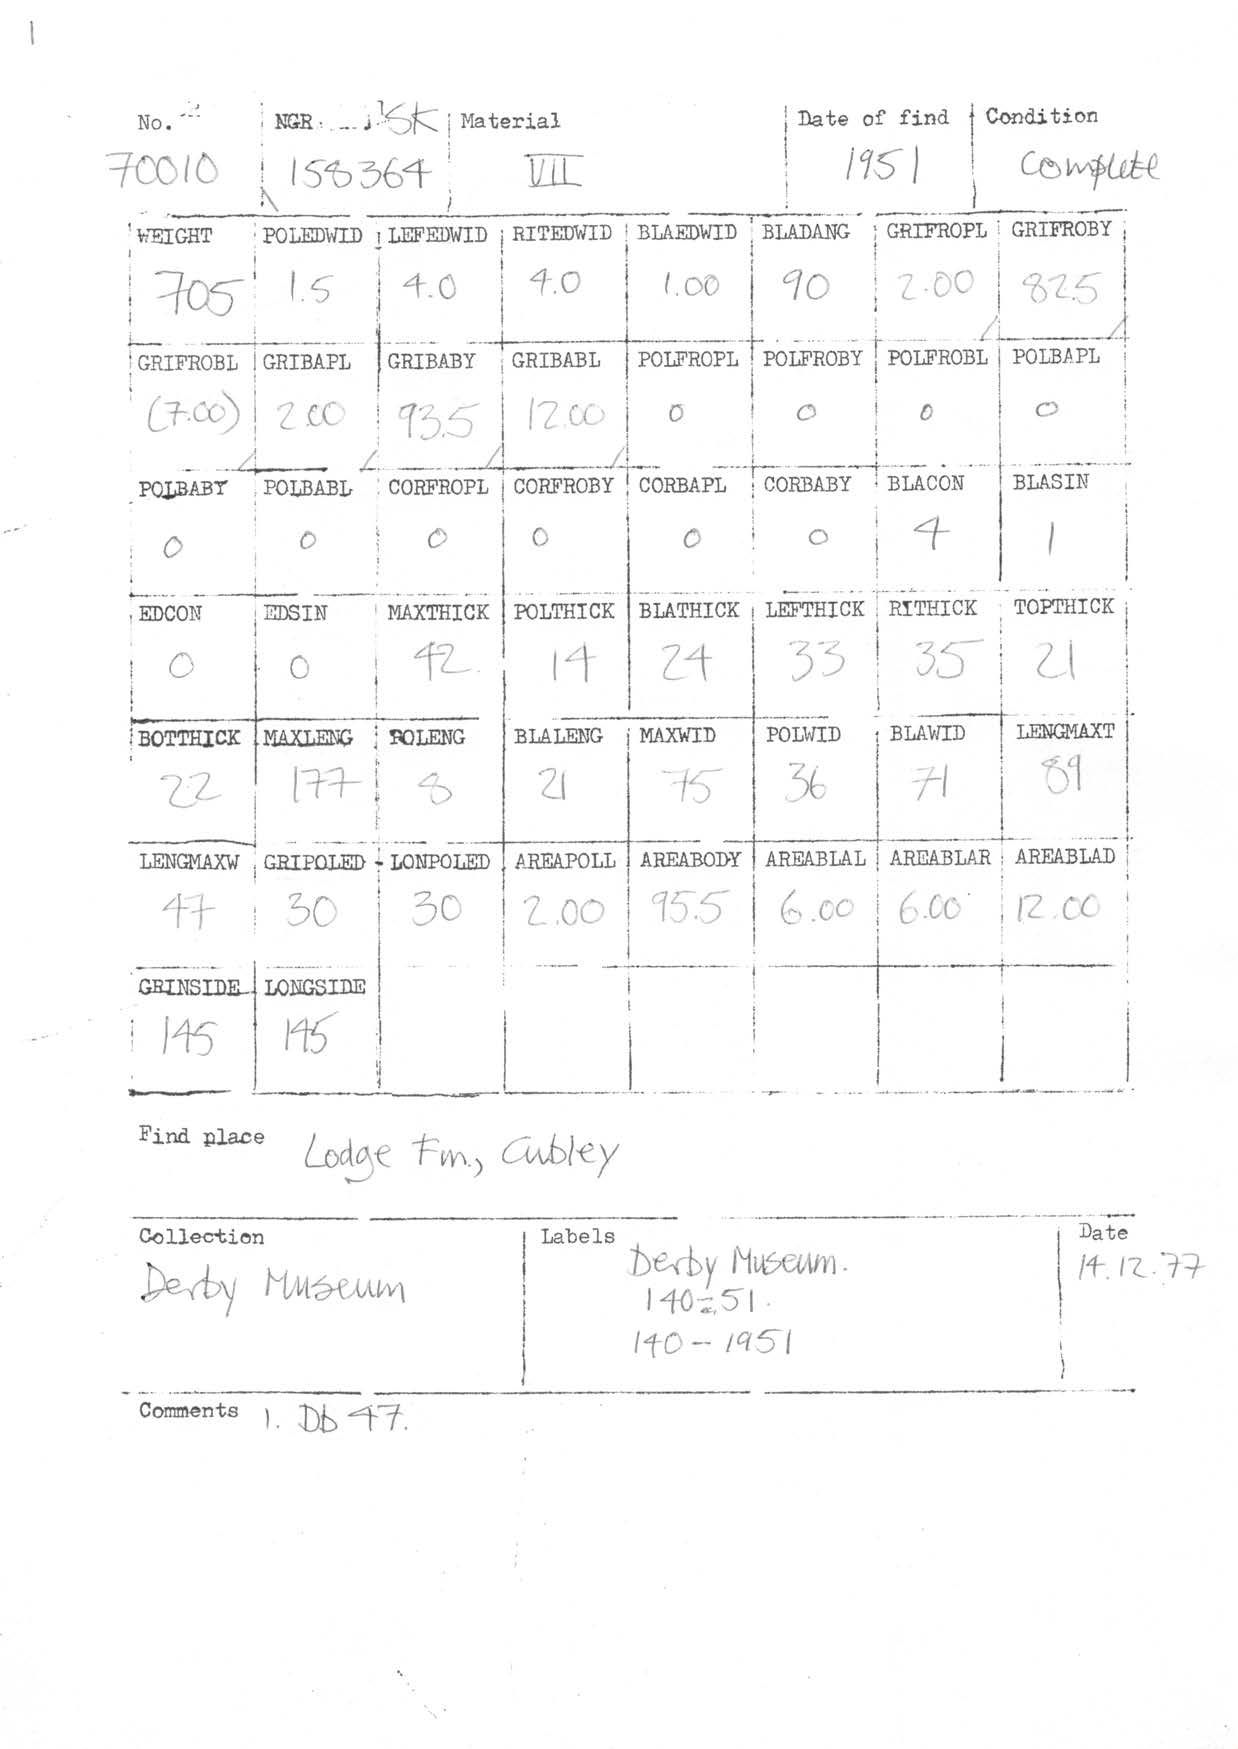 1
No. NGR SK Material Date of find Condition
70010 158364 VII 1951 Complete
WEIGHT POLEDWID LEFEDWID RITEDWID BLAEDWID BLADANG GRIFROPL GRIFROBY
705 1.5 4.0 4.0 1.00 90 2.00 82.5
GRIFROBL GRIBAPL GRIBABY GRIBABL POLFROPL POLFROBY POLFROBL POLBAPL
(7.00) 2.00 93.5 12.00 0 0 0 0
POLBABY POLBABL CORFROPL CORFROBY CORBAPL CORBABY BLACON BLASIN
0 0 0 0 0 0 4 1
EDCON EDSIN MAXTHICK POLTHICK BLATHICK LEFTHICK RITHICK TOPTHICK
0 0 42 14 24 33 35 21
BOTTHICK MAXLENG POLENG BLALENG MAXWID POLWID BLAWID LENGMAXT
22 177 8 21 75 36 71 89
LENGMAXW GRIPOLED LONPOLED AREAPOLL AREABODY AREABLAL AREABLAR AREABLAD
47 30 30 2.00 95.5 6.00 6.00 12.00
GRINSIDE LONGSIDE
145 145
Find place Lodge Fm., Cubley
Collection Labels Date
Derby Museum Derby Museum. 14.12.77
140=51.
140-1951
Comments 1. Db 47.